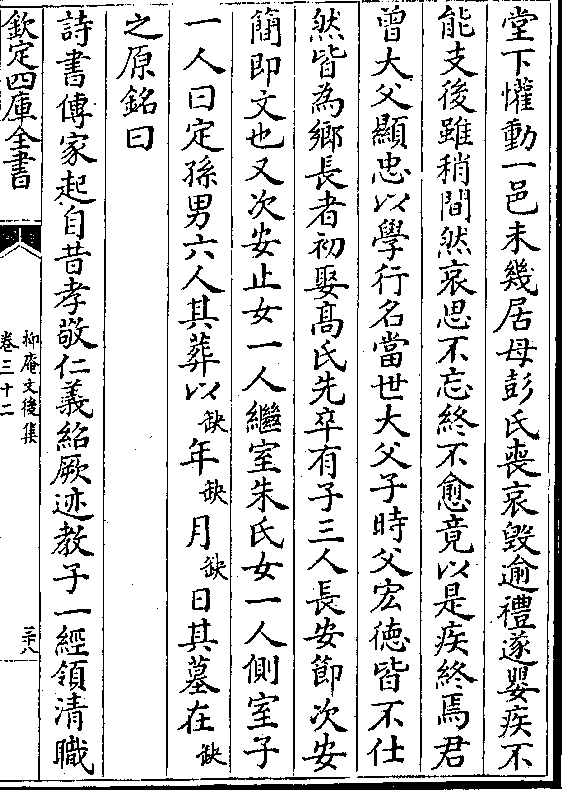 堂下懽動一邑未幾居母彭氏喪哀毀逾禮遂嬰疾不
能支後雖稍間然哀思不忘終不愈竟以是疾終焉君
曾大父顯忠以學行名當世大父子時父宏徳皆不仕
然皆為鄉長者初娶髙氏先卒有子三人長安節次安
簡即文也又次安止女一人繼室朱氏女一人側室子
一人曰定孫男六人其葬以缺年缺月缺日其墓在缺
之原銘曰
詩書傳家起自昔孝敬仁義紹厥迹教子一經領清職
欽定四庫全書
抑庵文後集
卷三十二
三十八